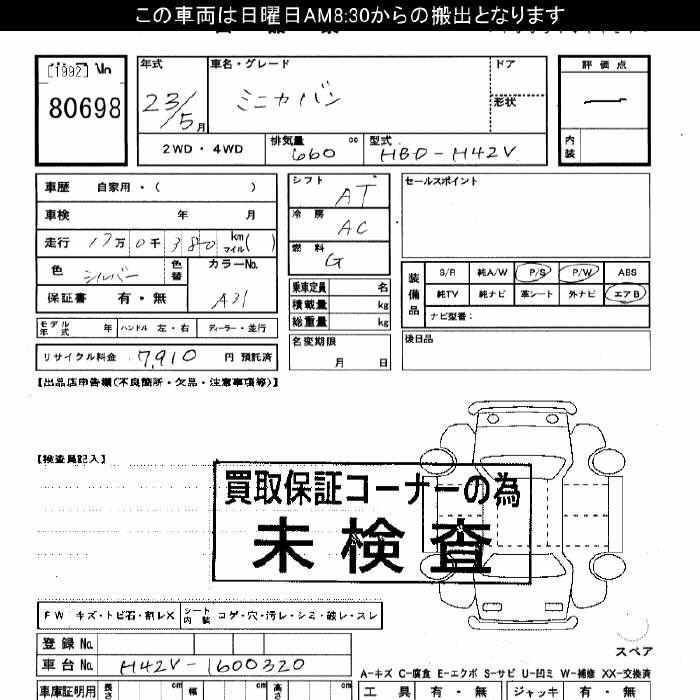 この車両は日曜日AM8:30からの搬出となります
[1992]
80698
年式
23/5月
車名・グレード
ミニカバン
ドア
形状
評価点
—
内装
2WD・4WD
排気量 cc
660
型式
HBD-H42V
車歴 自家用・( )
車検 年 月
走行 17万 0千 380 km マイル( )
色 シルバー
色替
カラーNo.
A31
保証書 有・無
モデル年式 年 ハンドル 左・右 ディーラー・並行
リサイクル料金 7,910 円 預託済
シフト AT
冷房 AC
燃料 G
乗車定員 名
積載量 kg
総重量 kg
名変期限
月 日
セールスポイント
装備品
S/R 純A/W P/S P/W ABS
純TV 純ナビ 革シート 外ナビ エアB
ナビ型番:
後日品
【出品店申告欄(不良箇所・欠品・注意事項等)】
【検査員記入】
買取保証コーナーの為
未検査
FW キズ・トビ石・割レX シート内装 コゲ・穴・汚レ・シミ・破レ・スレ
登録No.
車台No. H42V-1600320
スペア
A-キズ C-腐食 E-エクボ S-サビ U-凹ミ W-補修 XX-交換済
車庫証明用 長さ cm 幅 cm 高さ cm
工具 有・無 ジャッキ 有・無